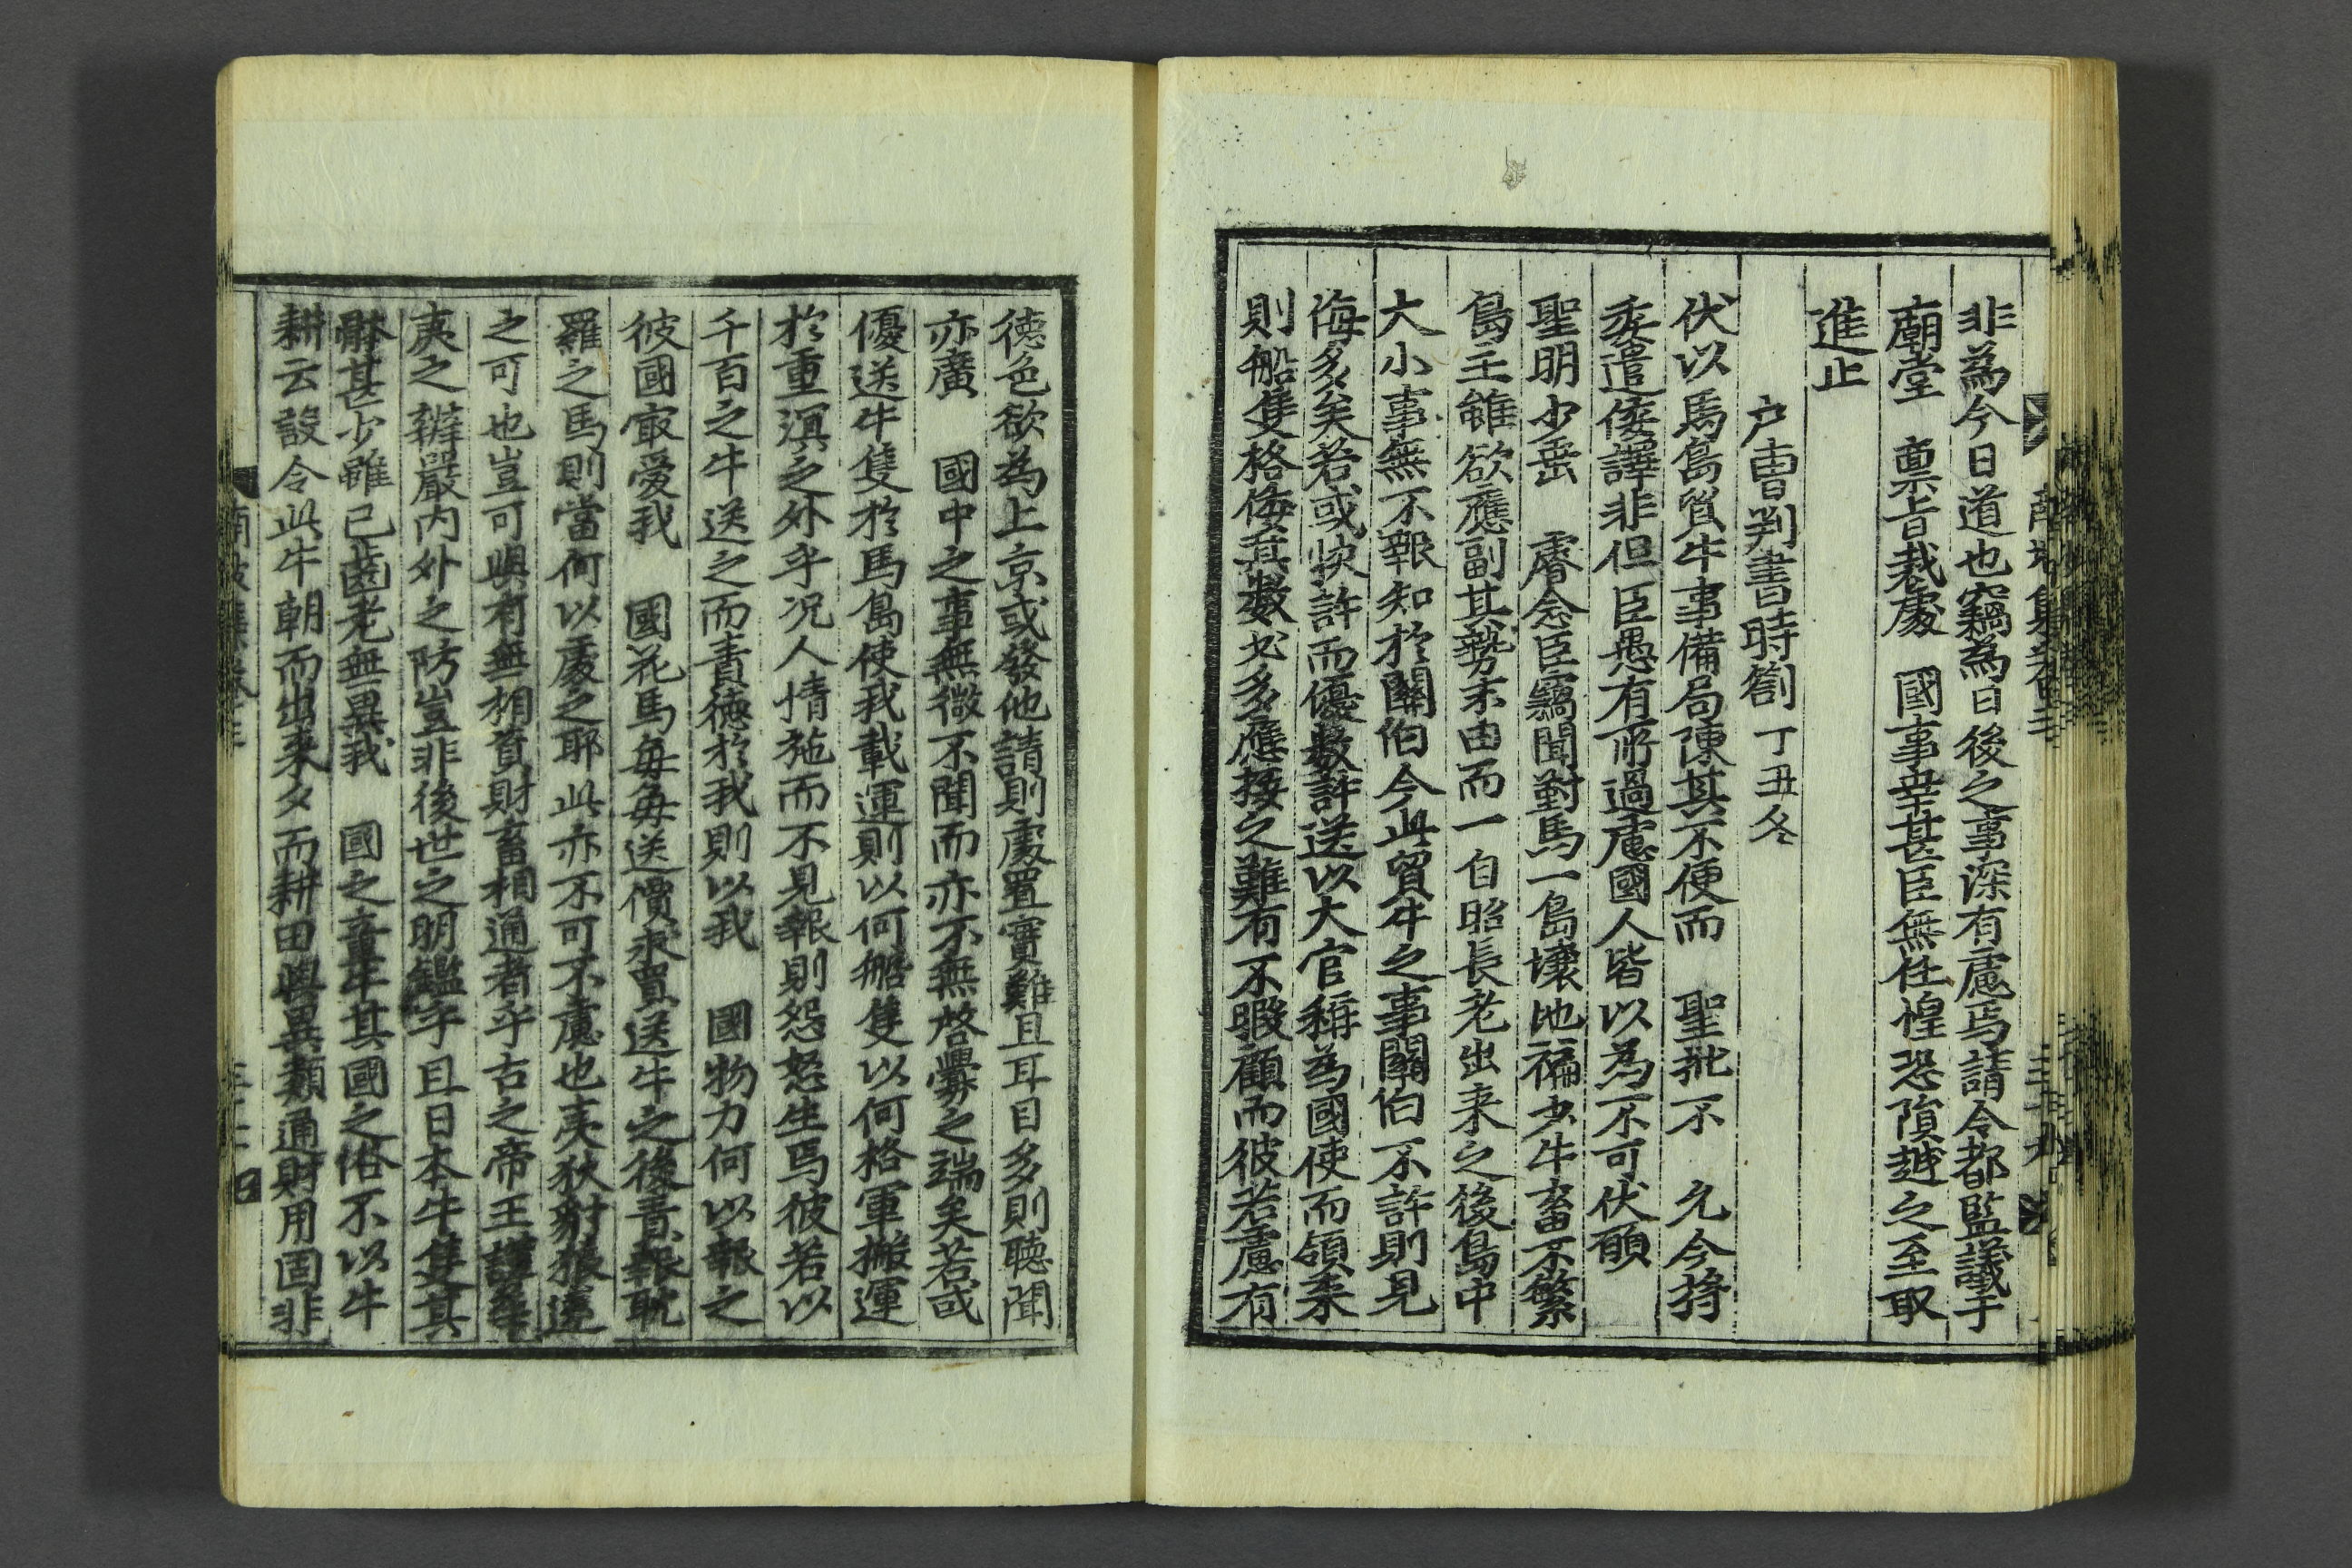 非為今日道也竊為日後之事深有慮焉請令都監議于
廟堂 禀旨裁處 國事幸甚臣無任惶恐隕越之至取
進止
戶曹判書時箚 丁丑冬
伏以馬島貿牛事備局陳其不便而 聖批不 允今將
委遣倭譯非但臣愚有所過慮國人皆以為不可伏願
聖明少垂 睿念臣竊聞對馬一島壤地褊少牛畜不繁
島主雖欲應副其勢末由而一自昭長老出来之後島中
大小事無不報知於關伯今此貿牛之事關伯不許則見
侮多矣若或快許而優數許送以大官稱為國使而領来
則船隻格倭其數必多應接之難有不暇顧而彼若慮有
德色欲為上京或發他請則處置實難且耳目多則聽聞
亦廣 國中之事無微不聞而亦不無啓釁之端矣若或
優送牛隻於馬島使我載運則以何船隻以何格軍搬運
於重溟之外乎况人情施而不見報則怨怒生焉彼若以
千百之牛送之而責德於我則以我 國物力何以報之
彼國㝡愛我 國花馬每每送價求買送牛之後責報耽
羅之馬則當何以處之耶此亦不可不慮也夷狄豺狼遠
之可也豈可與有無相資財畜相通者乎古之帝王謹華
夷之辨嚴內外之防豈非後世之明鑑乎且日本牛隻其
甚少雖已齒老無異我 國之童牛其國之俗不以牛
耕云設令此牛朝而出来夕而耕田與異類通財用固非